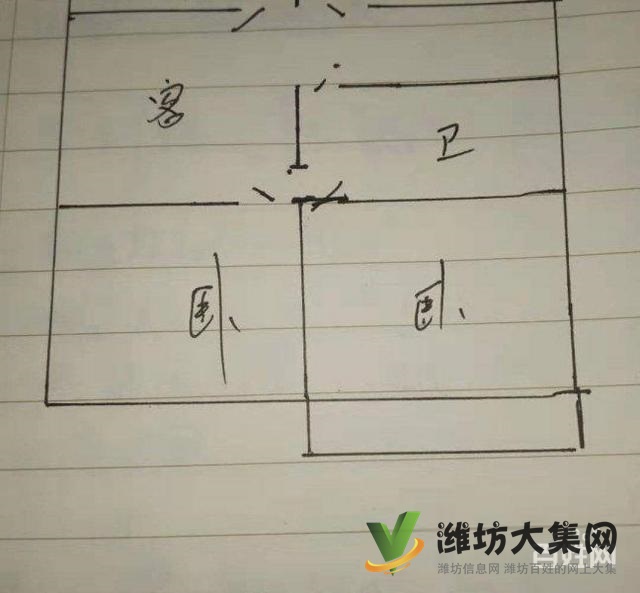 客
卫
卧
卧
潍坊大集网
百姓网
潍坊信息网 潍坊百姓的网上大集